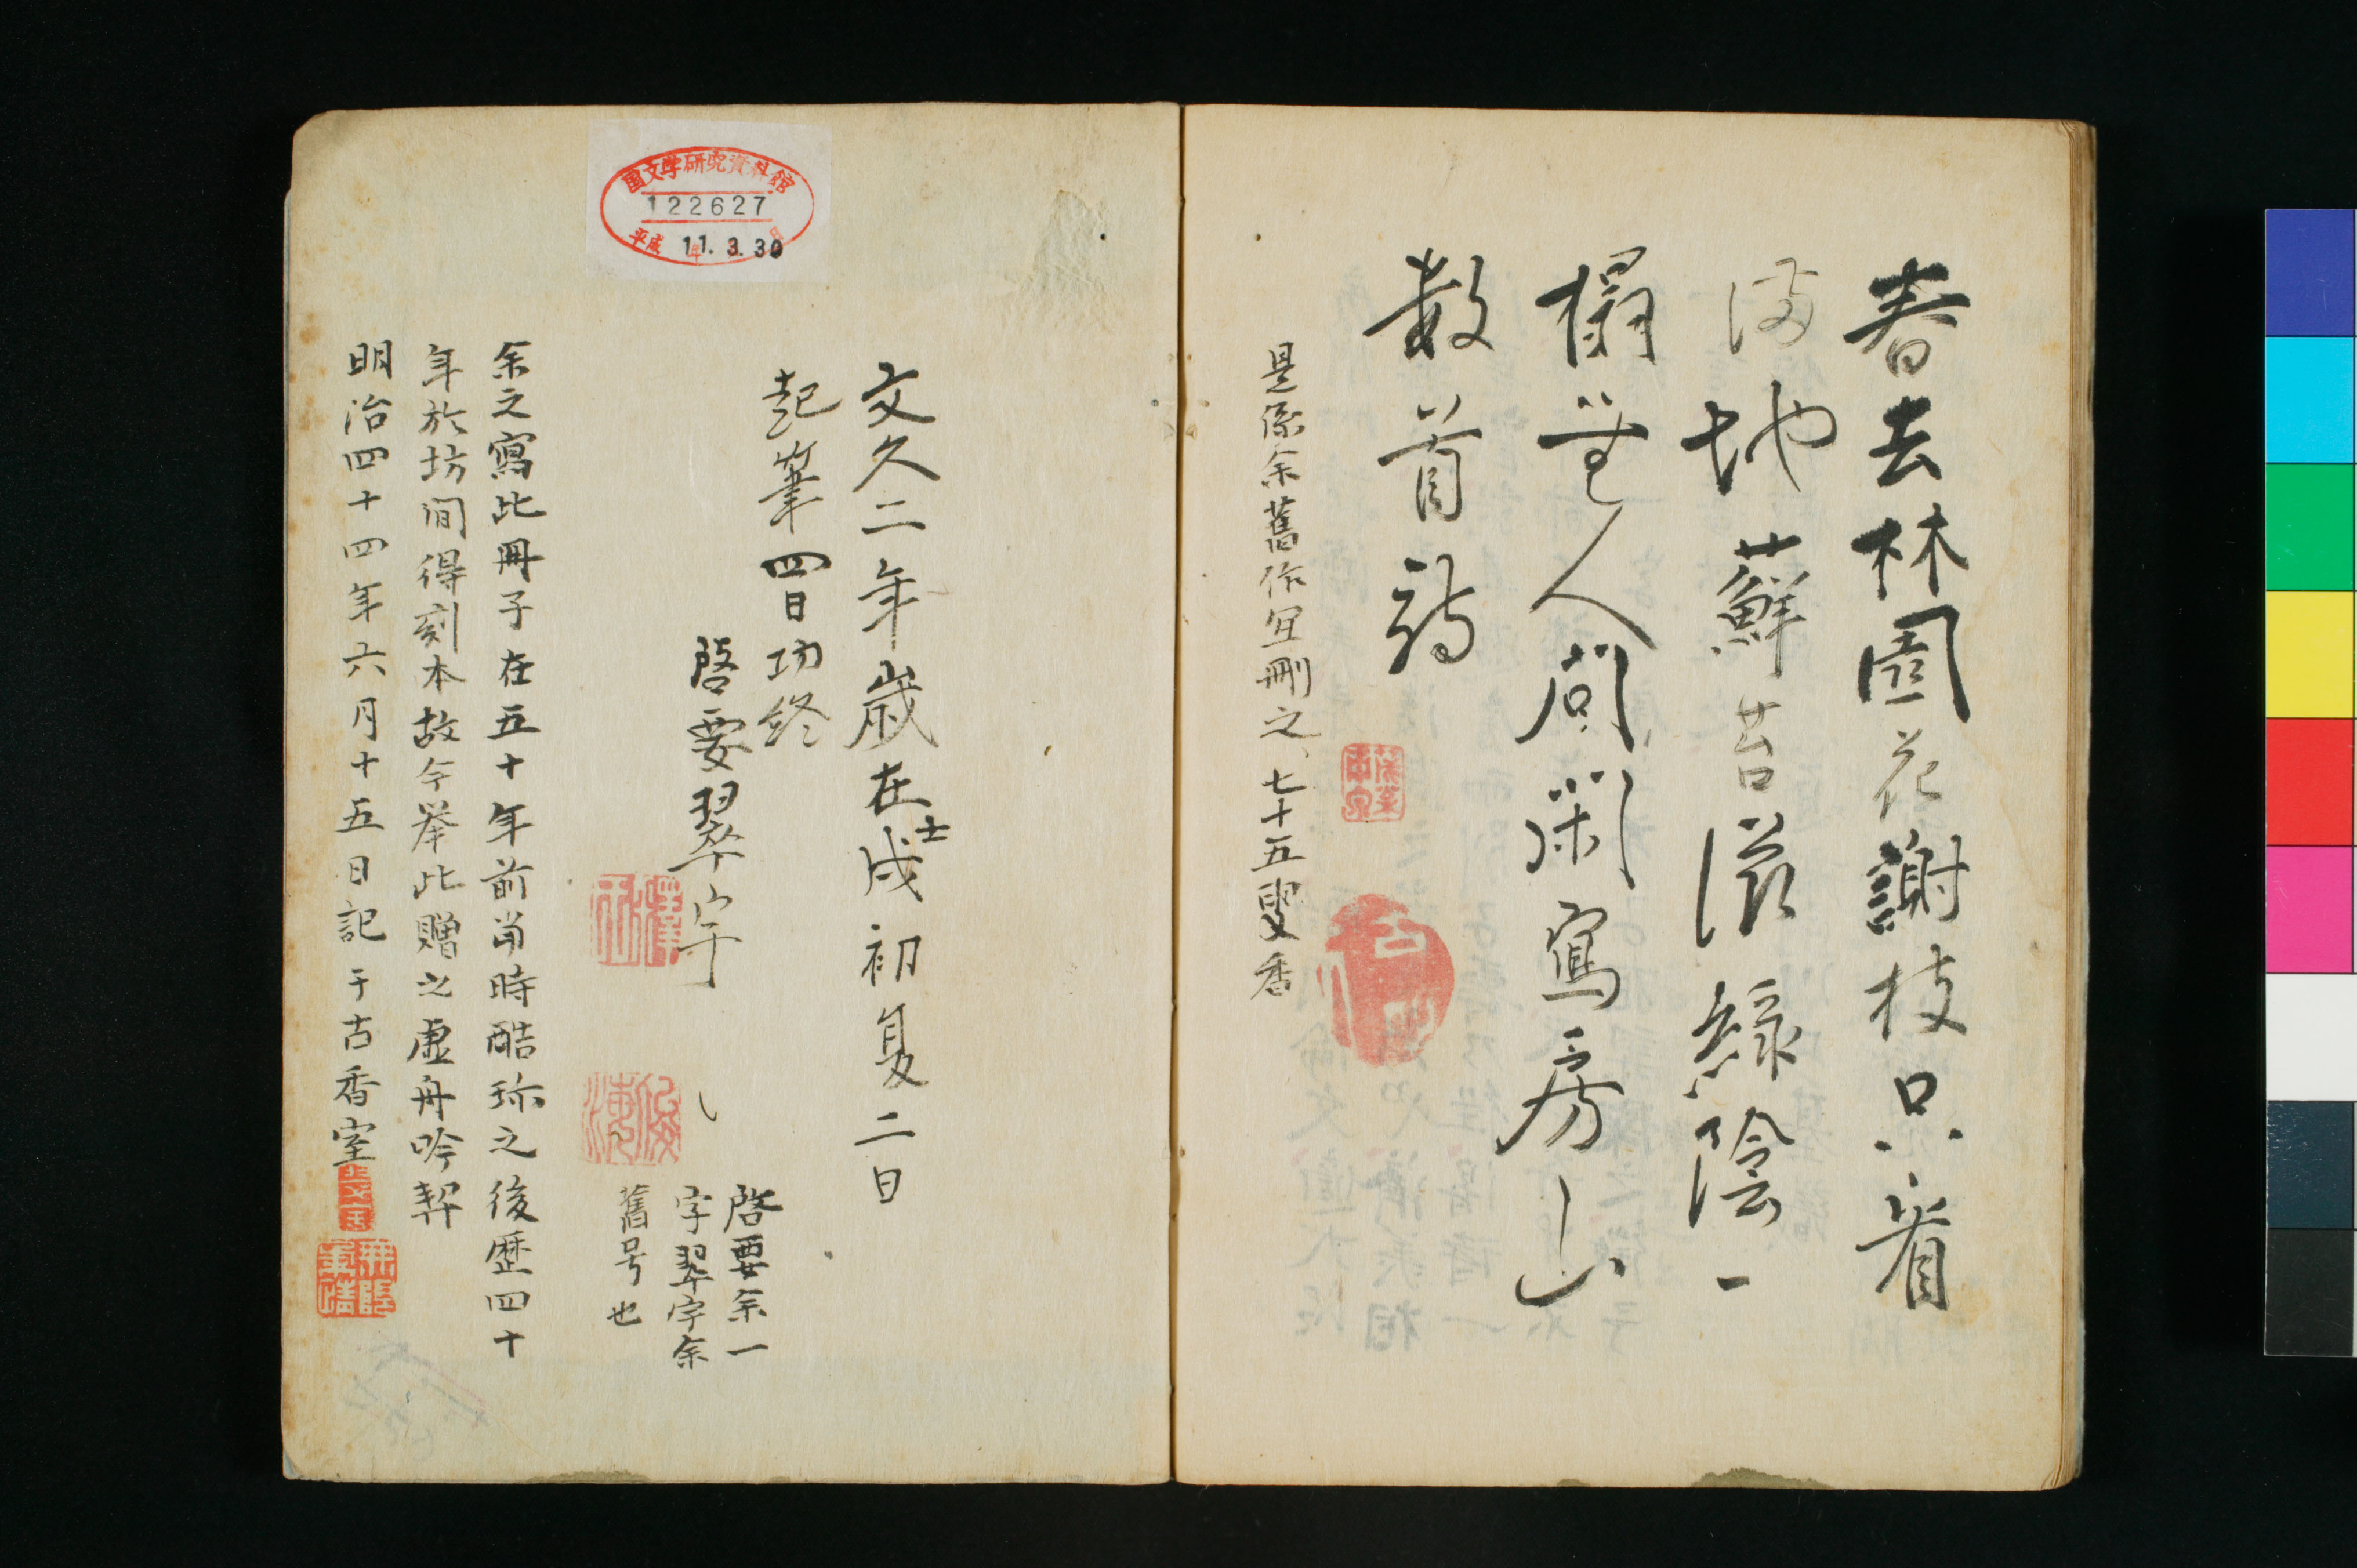 春去林園花謝枝只看
満地蘚苔滋緑陰一
榻無人問閑寫房山
数首詩
是係余舊作宜刪之、七十五叟香
国文学研究資料館
122627
平成 年 月 日
11.3.30
文久二年歳在壬戌初夏二日
起筆四日功終
啓要翠宇
啓要余一
字翠宇余
舊号也
余之寫此冊子在五十年前尚時酷珎之後歴四十
年於坊間得刻本故今挙此贈之虚舟吟契
明治四十四年六月十五日記于古香室